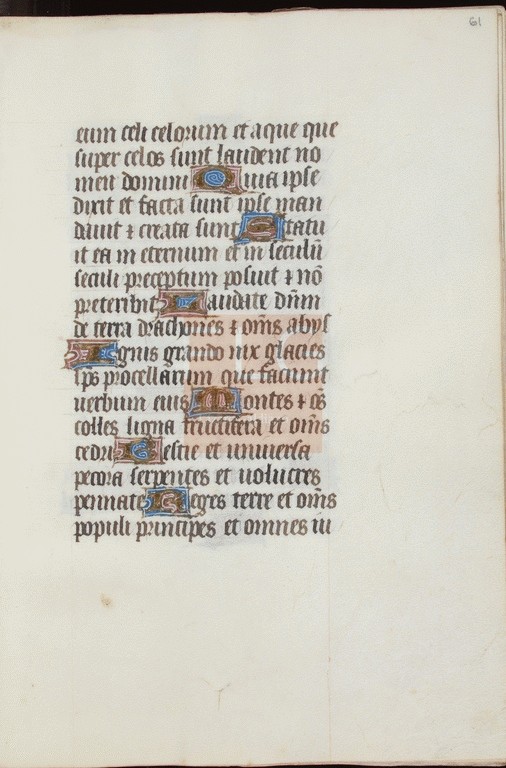 61
eum celi celorum et aque que
super celos sunt laudent no
men domini Quia ipse
dixit et facta sunt ipse man
dauit ⁊ creata sunt Statu
it ea in eternum et in seculū
seculi preceptum posuit ⁊ nō
preteribit Laudate dn̄m
de terra drachones ⁊ om̄s abyſ
Ignis grando nix glacies
sp̄s procellarum que faciunt
uerbum eius Montes ⁊ om̄s
colles ligna fructifera et om̄s
cedri Bestie et uniuersa
pecora serpentes et uolucres
pennate Reges terre et om̄s
populi principes et omnes iu